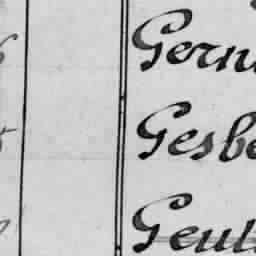 Gern
Gesbe
Geul